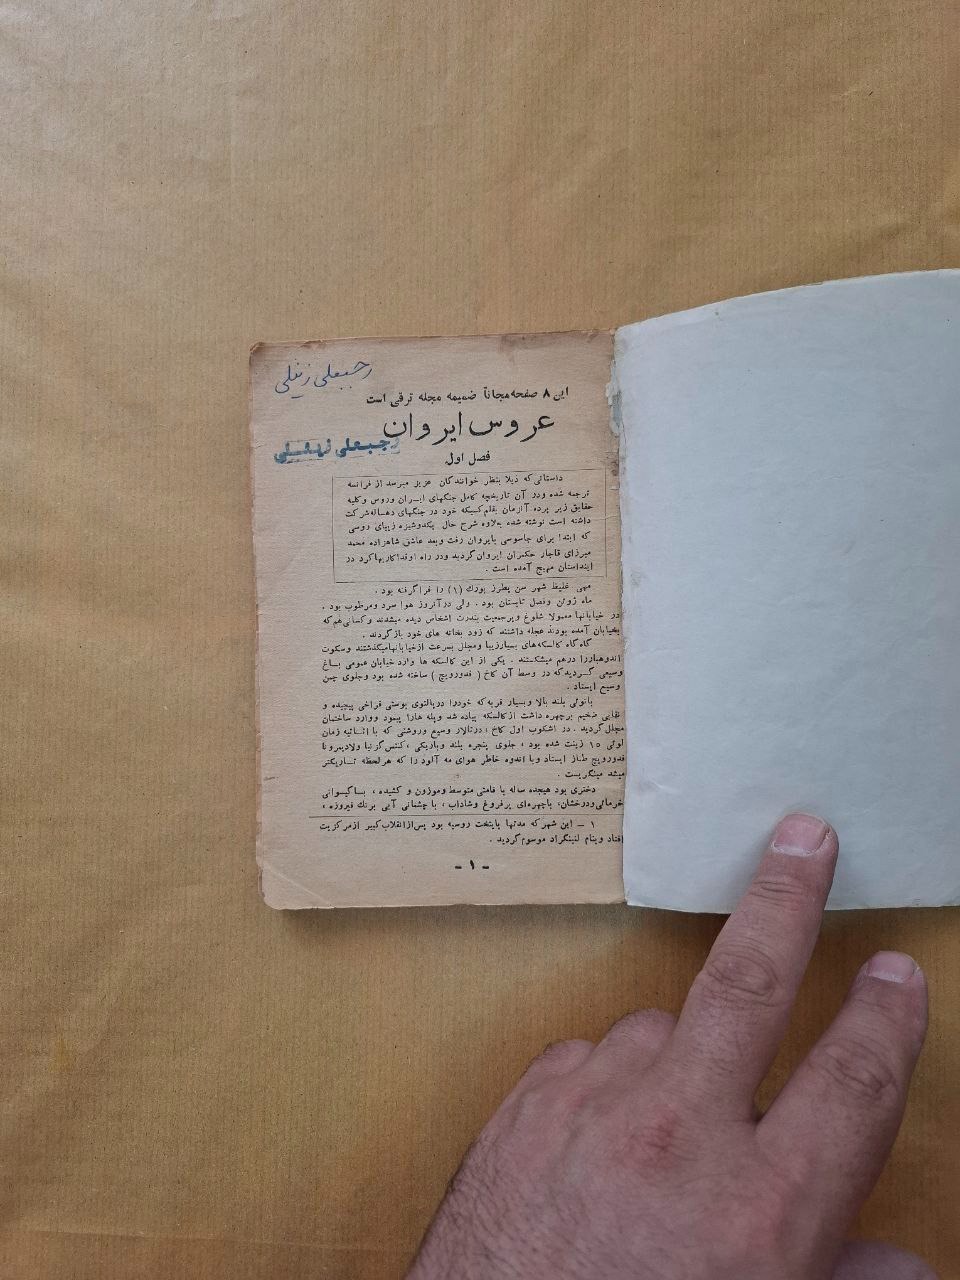 رجبعلی زینلی
این ۸ صفحه مجاناً ضمیمه مجله ترقی است
عروس ایروان
رجبعلی
فصل اول
داستانی که ذیلا بنظر خوانندگان عزیز میرسد از فرانسه
ترجمه شده ودر آن تاریخچه کامل جنگهای ایران وروس وکلیه
حقایق زیر پرده آنزمان بقلم کسیکه خود در جنگهای دهساله شرکت
داشته است نوشته شده بعلاوه شرح حال یکدوشیزه زیبای روسی
که ابتدا برای جاسوسی بایروان رفت وبعد عاشق شاهزاده محمد
میرزای قاجار حکمران ایروان گردید ودر راه اوفداکاریها کرد در
اینداستان مهیج آمده است .
مهی غلیظ شهر سن پطرز بورك (۱) را فراگرفته بود .
ماه ژوئن وفصل تابستان بود . ولی در آنروز هوا سرد ومرطوب بود .
در خیابانها معمولا شلوغ وپرجمعیت بندرت اشخاص دیده میشدند وکسانی هم که
بخیابان آمده بودند عجله داشتند که زود بخانه های خود بازگردند .
گاه گاه کالسکه های بسیارزیبا ومجلل بسرعت ازخیابانهامیگذشتند وسکوت
اندوهبارزا درهم میشکستند . یکی از این کالسکه ها وارد خیابان عمومی باغ
وسیعی گردید که در وسط آن کاخ ( فدورویچ ) ساخته شده بود وجلوی چمن
وسیع ایستاد .
بانوئی بلند بالا وبسیار فربه که خودرا درپالتوی پوستی فراخی پیچیده و
نقابی ضخیم برچهره داشت از کالسکه پیاده شد وپله هارا پیمود ووارد ساختمان
مجلل گردید . در اشکوب اول کاخ ، درتالار وسیع وروشنی که با اثاثیه زمان
لوئی ۱۵ زینت شده بود ، جلوی پنجره بلند وباریکی ، کنتس کزنیا ولادیمرونا
فدورویچ طناز ایستاد وبا اندوه خاطر هوای مه آلود را که هرلحظه تاریکتر
میشد مینگریست .
دختری بود هیجده ساله با قامتی متوسط وموزون و کشیده ، با گیسوانی
خرمائی ودرخشان، باچهره ای پرفروغ وشاداب ، با چشمانی آبی برنك فیروزه ،
۱ ـ این شهر که مدتها پایتخت روسیه بود پس از انقلاب کبیر از مرکزیت
افتاد وبنام لنینگراد موسوم گردید .
ـ ۱ ـ